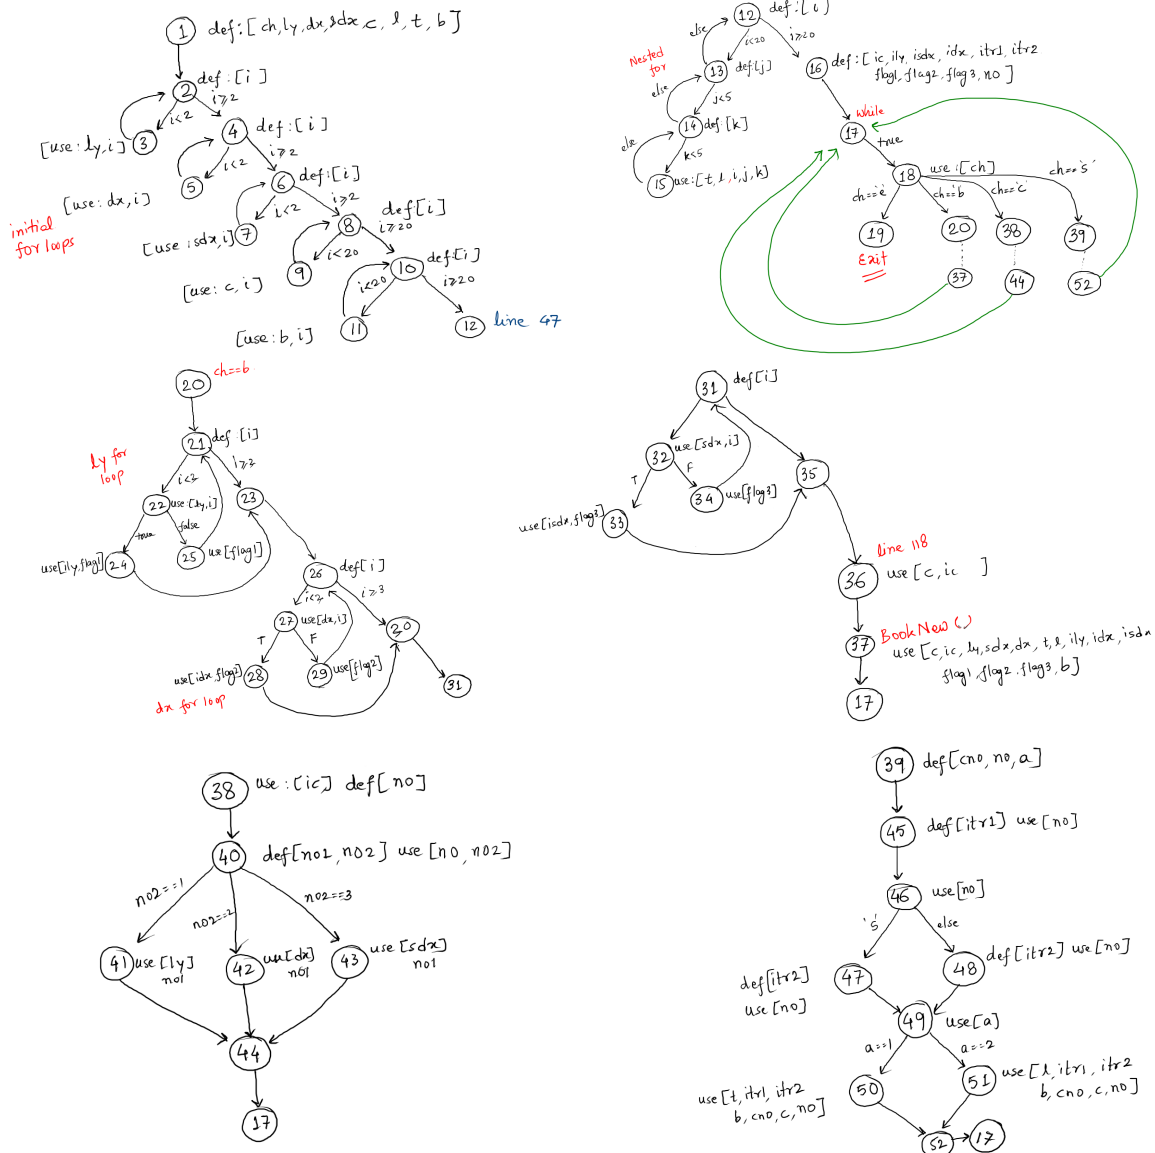 1 def:[ch,ly,dx,sdx,c, l, t, b]
2 def:[i]
i≥2
i<2
[use: ly,i] 3
4 def:[i]
i≥2
i<2
[use: dx,i] 5
6 def:[i]
i≥2
i<2
[use:sdx,i] 7
initial
for loops
8 def[i]
i≥20
i<20
[use: c,i] 9
10 def[i]
i<20
i≥20
[use:b,i] 11
12 line 47
12 def:[i]
else
i<20
i≥20
Nested
for
13 def[j]
else
j<5
14 def:[k]
else
k<5
15 use:[t,l,i,j,k]
16 def:[ic,ily, isdx, idx, itr1, itr2
flag1,flag2,flag3,no]
while
17
true
18 use:[ch]
ch=='e'
ch=='b
ch=='c'
ch=='s'
19 20 38 39
Exit
37 44 52
20 ch==b
21 def:[i]
ly for
loop
i<2
i≥2
22 use:[ly,i]
23
true
false
use[ily,flag1] 24
25 use[flag1]
26 def[i]
i≥3
27 use[dx,i]
30
T
F
use[idx,flag2] 28
29 use[flag2]
dx for loop
31
31 def[i]
32 use[sdx,i]
T
F
35
use[isdx,flag3] 33
34 use[flag3]
line 118
36 use[c,ic ]
37 BookNew()
use[c,ic, ly,sdx,dx, t,l, ily, idx, isdx
flag1,flag2.flag3,b]
17
38 use:[ic] def[no]
40 def[no1,no2] use[no,no2]
no2==1
no2==2
no2==3
41 use[ly]
no1
42 use[dx]
no1
43 use[sdx]
no1
44
17
39 def[cno,no,a]
45 def[itr1] use[no]
46 use[no]
's'
else
47 def[itr2]
use[no]
48 def[itr2] use[no]
49 use[a]
a==1
a==2
50 use[t,itr1, itr2
b,cno,c,no]
51 use[l,itr1, itr2
b,cno,c,no]
52 17